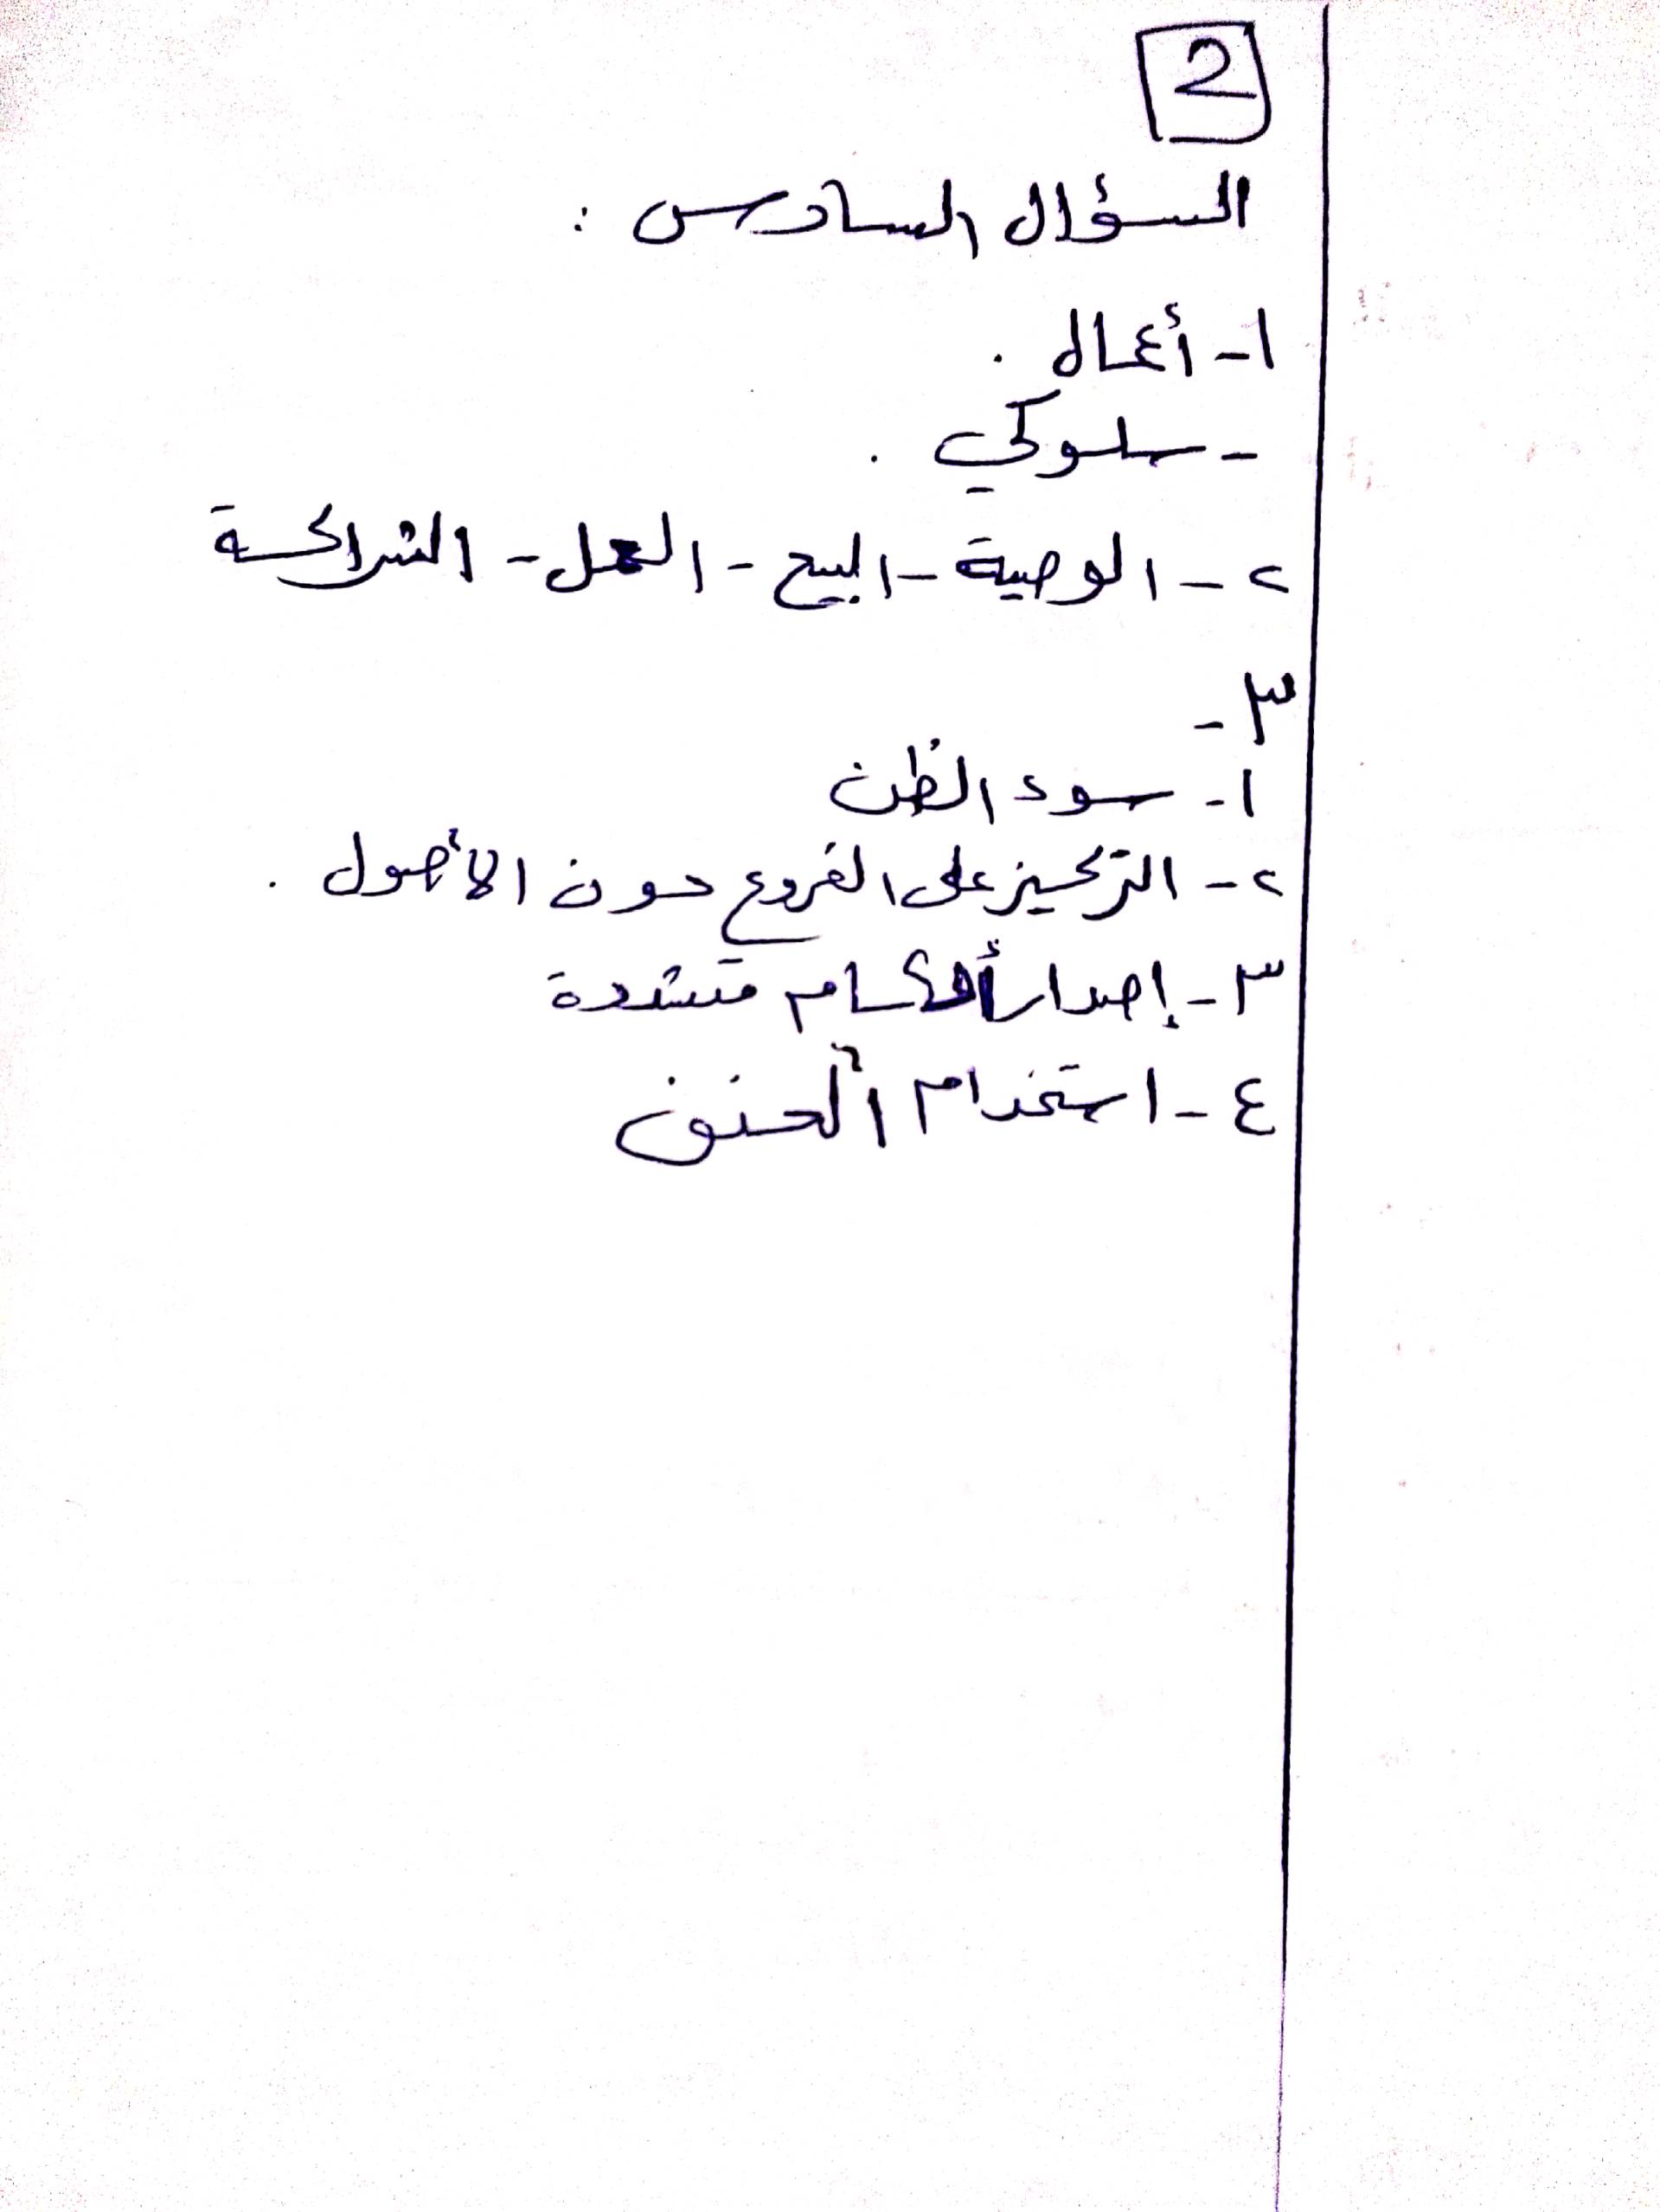 2
السؤال السادس :
١- أعمال .
- سلوكي .
٢- الوصية - البيع - العمل - الشراكة
٣-
١- سوء الظن
٢- التركيز على الفروع دون الأصول .
٣- إصدار أحكام متشددة
٤- استخدام العنف